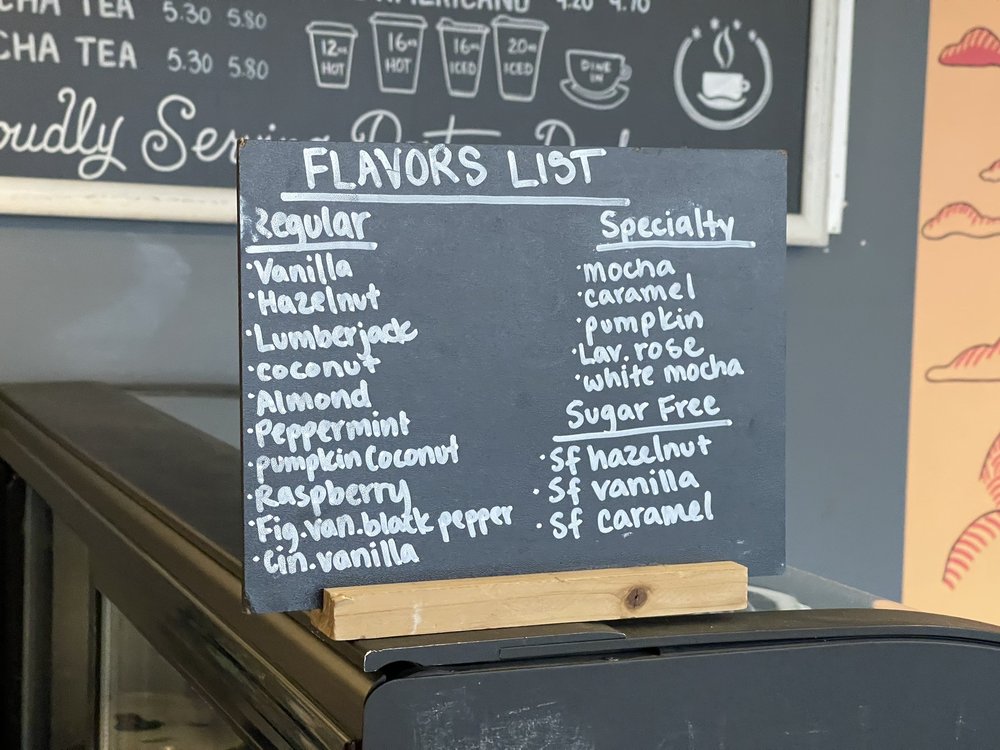 CHA TEA 5.30 5.80
CHA TEA 5.30 5.80
12oz HOT
16oz HOT
16oz ICED
20oz ICED
DINE IN
FLAVORS LIST
Regular
·Vanilla
·Hazelnut
·Lumberjack
·coconut
·Almond
·Peppermint
·pumpkin Coconut
·Raspberry
·Fig.van.black pepper
·Cin.vanilla
Specialty
·mocha
·caramel
·pumpkin
·Lav. rose
·white mocha
Sugar Free
·Sf hazelnut
·Sf vanilla
·Sf caramel